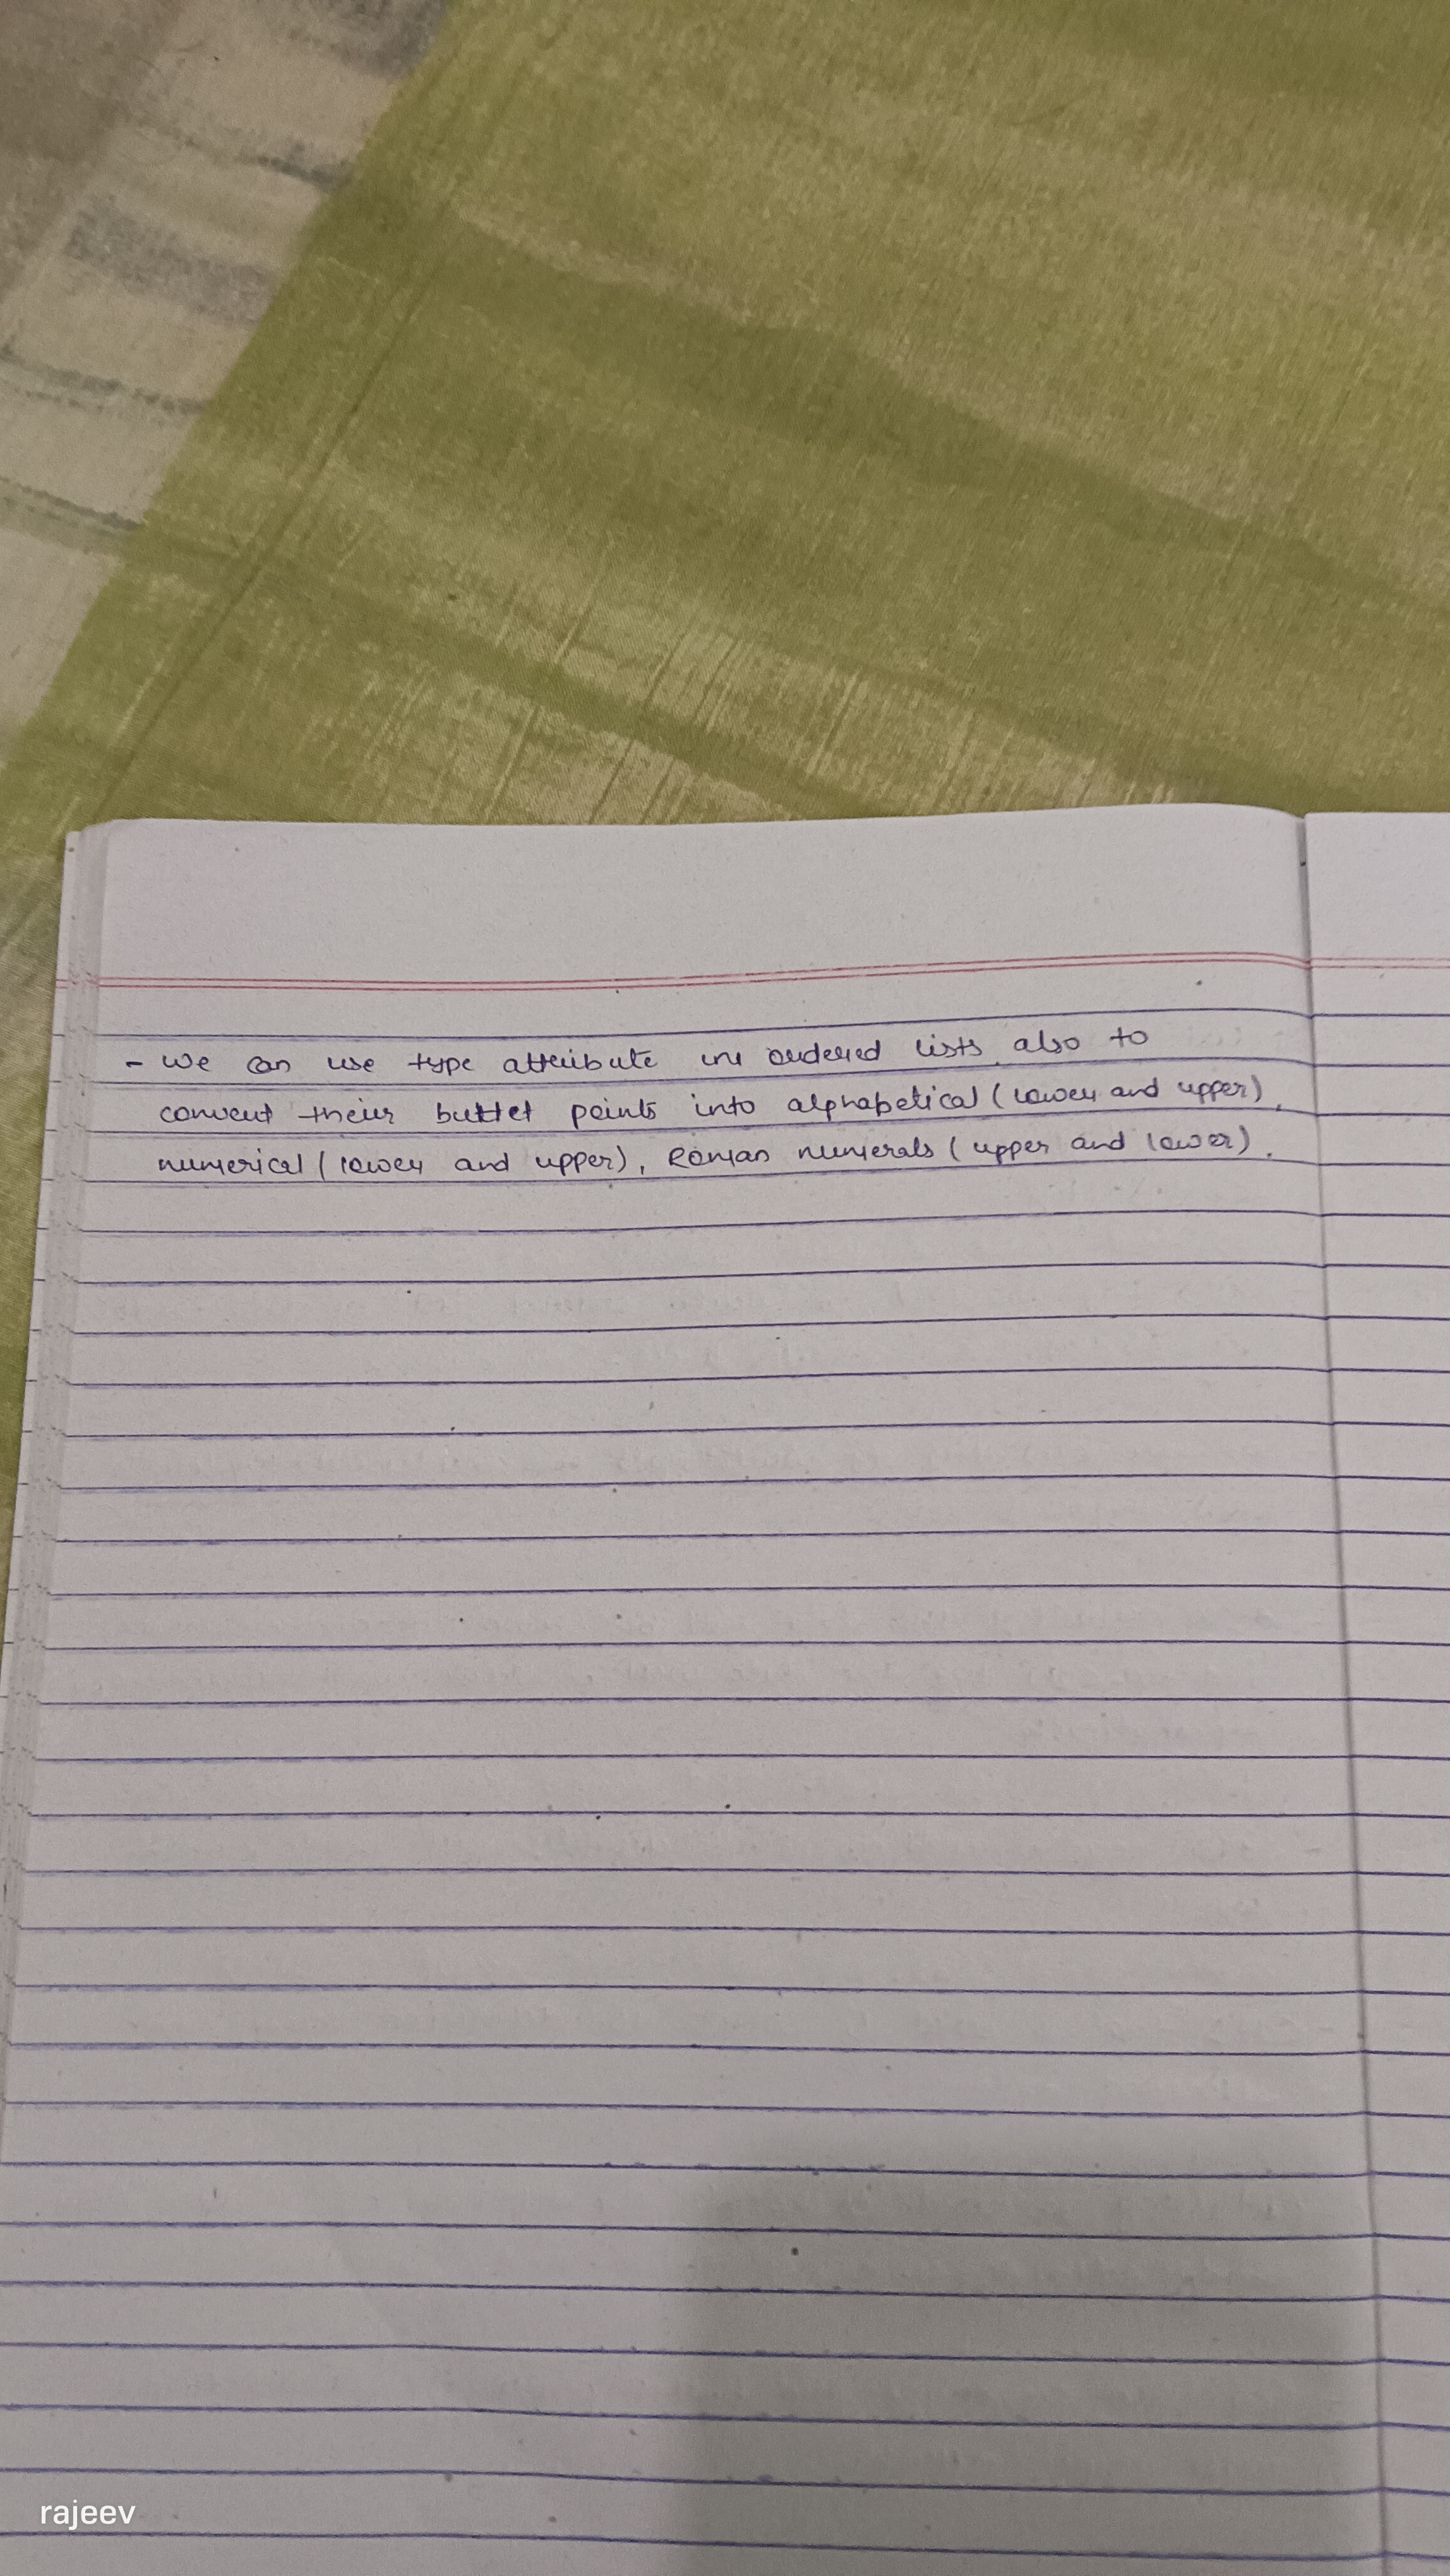 - we can use type attribute in ordered lists also to
convert their bullet points into alphabetical (lower and upper),
numerical (lower and upper), Roman numerals (upper and lower).
rajeev